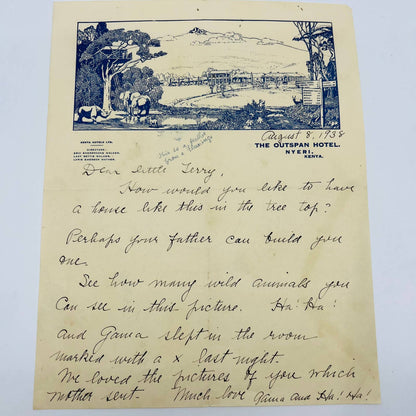 August 8, 1938
THE OUTSPAN HOTEL.
NYERI,
KENYA.
KENYA HOTELS LTD.
DIRECTORS:
ERIC SHERBROOKE WALKER.
LADY BETTIE WALKER.
This is a
from a
Dear little Terry,
How would you like to have
a house like this in the tree top?
Perhaps your father can build you
one.
See how many wild animals you
can see in this picture. Ha! Ha!
and Gama slept in the room
marked with a x last night.
We loved the pictures of you which
mother sent. Much love Gama and Ha! Ha!